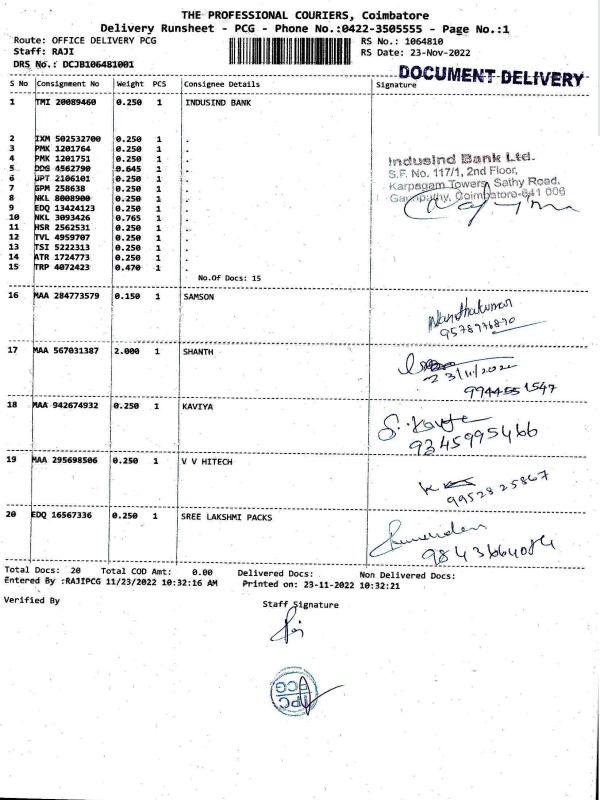 THE PROFESSIONAL COURIERS, Coimbatore
Delivery Runsheet - PCG - Phone No.:0422-3505555 - Page No.:1
Route: OFFICE DELIVERY PCG RS No.: 1064810
Staff: RAJI RS Date: 23-Nov-2022
DRS No.: DCJB106481001
DOCUMENT DELIVERY
S No Consignment No Weight PCS Consignee Details Signature
1 TMI 20089460 0.250 1 INDUSIND BANK
2 IXM 502532700 0.250 1 .
3 PMK 1201764 0.250 1 .
4 PMK 1201751 0.250 1 .
5 DDS 4562790 0.645 1 .
6 UPT 2106101 0.250 1 .
7 GPM 258638 0.250 1 .
8 NKL 8008900 0.250 1 .
9 EDQ 13424123 0.250 1 .
10 NKL 3093426 0.765 1 .
11 HSR 2562531 0.250 1 .
12 TVL 4959707 0.250 1 .
13 TSI 5222313 0.250 1 .
14 ATR 1724773 0.250 1 .
15 TRP 4072423 0.470 1 .
No.Of Docs: 15
IndusInd Bank Ltd.
S.F. No. 117/1, 2nd Floor,
Karpagam Towers, Sathy Road,
Ganapathy, Coimbatore-641 006
16 MAA 284773579 0.150 1 SAMSON
Nandhakumar
9578976870
17 MAA 567031387 2.000 1 SHANTH
23/11/2022
9944551547
18 MAA 942674932 0.250 1 KAVIYA
S. Kaviya
9345995466
19 MAA 295698506 0.250 1 V V HITECH
9952825867
20 EDQ 16567336 0.250 1 SREE LAKSHMI PACKS
9843664084
Total Docs: 20 Total COD Amt: 0.00 Delivered Docs: Non Delivered Docs:
Entered By :RAJIPCG 11/23/2022 10:32:16 AM Printed on: 23-11-2022 10:32:21
Verified By Staff Signature
PCG